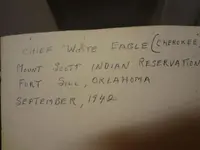 CHIEF WHITE EAGLE (CHEROKEE)
MOUNT SCOTT INDIAN RESERVATION
FORT SILL, OKLAHOMA
SEPTEMBER, 1942